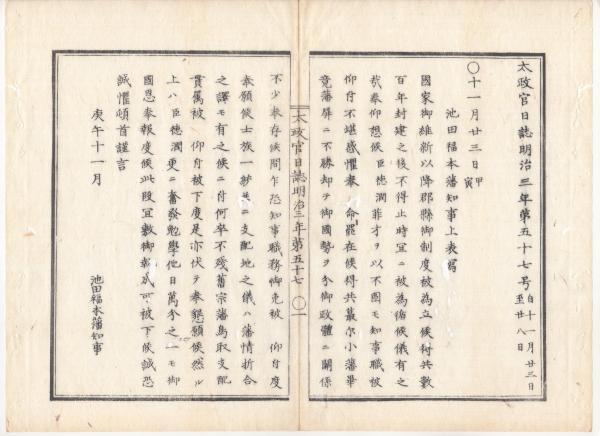 太政官日誌明治三年第五十七号 自十一月廿三日 至廿八日
〇十一月廿三日 甲寅
池田福本藩知事上表写
国家御維新以降郡縣御制度被為立候得共数
百年封建之後不得止時宜ニ被為循候儀有之
哉奉仰想候臣徳潤菲才ヲ以不図モ知事職被
仰付不堪感懼奉 命罷在候得共蕞尓小藩畢
竟藩屏ニ不勝却テ御國勢ヲ分御政體ニ關係
太政官日誌明治三年第五十七 〇一
不少奉存候間乍恐知事職務御免被 仰付度
奉願候士族一紗并ニ支配地之儀ハ藩情折合
之譯モ有之候ニ付何卒不残舊宗藩鳥取支配
貫属被 仰付被下度是亦伏テ奉懇願候然ル
上ハ臣徳潤更ニ奮發勉學他日萬分之一モ御
國恩奉報度候此段宜敷御報成可被下候誠恐
誠懼頓首謹言
庚午十一月
池田福本藩知事